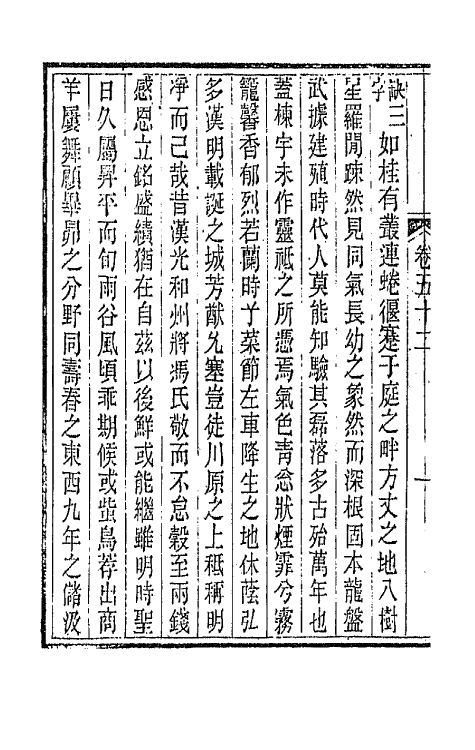 卷五十二
一
缺三字如桂有叢連蜷偃蹇于庭之畔方丈之地八樹
星羅閒踈然見同氣長幼之象然而深根固本龍盤
武據建殖時代人莫能知驗其磊落多古殆萬年也
蓋棟宇未作靈祗之所憑焉氣色靑忩狀煙霏兮霧
籠馨香郁烈若蘭時兮菜節左車降生之地休蔭弘
多漢明載誕之城芳猷允塞豈徒川原之上秪稱明
淨而已哉昔漢光和州將馮氏敬而不怠穀至兩錢
感恩立銘盛績猶在自茲以後鮮或能繼雖明時聖
日久屬昇平而旬雨谷風頃乖期候或蚩鳥荐出商
羊屢舞顧畢昴之分野同壽春之東西九年之儲汲